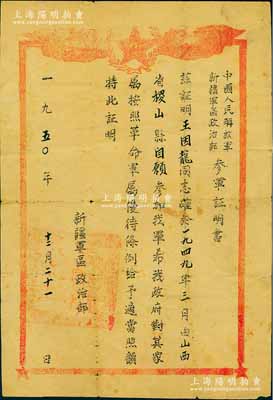 上海阳明拍卖
中國人民解放軍
新疆軍區政治部
參軍証明書
茲証明王因龍同志確系一九四九年三月由山西
省稷山縣自願參加我軍希我政府對其家
屬按照革命軍屬優待條例給予適當照顧
特此証明
新疆軍區政治部
一九五〇年十二月二十一日
上海陽明拍賣